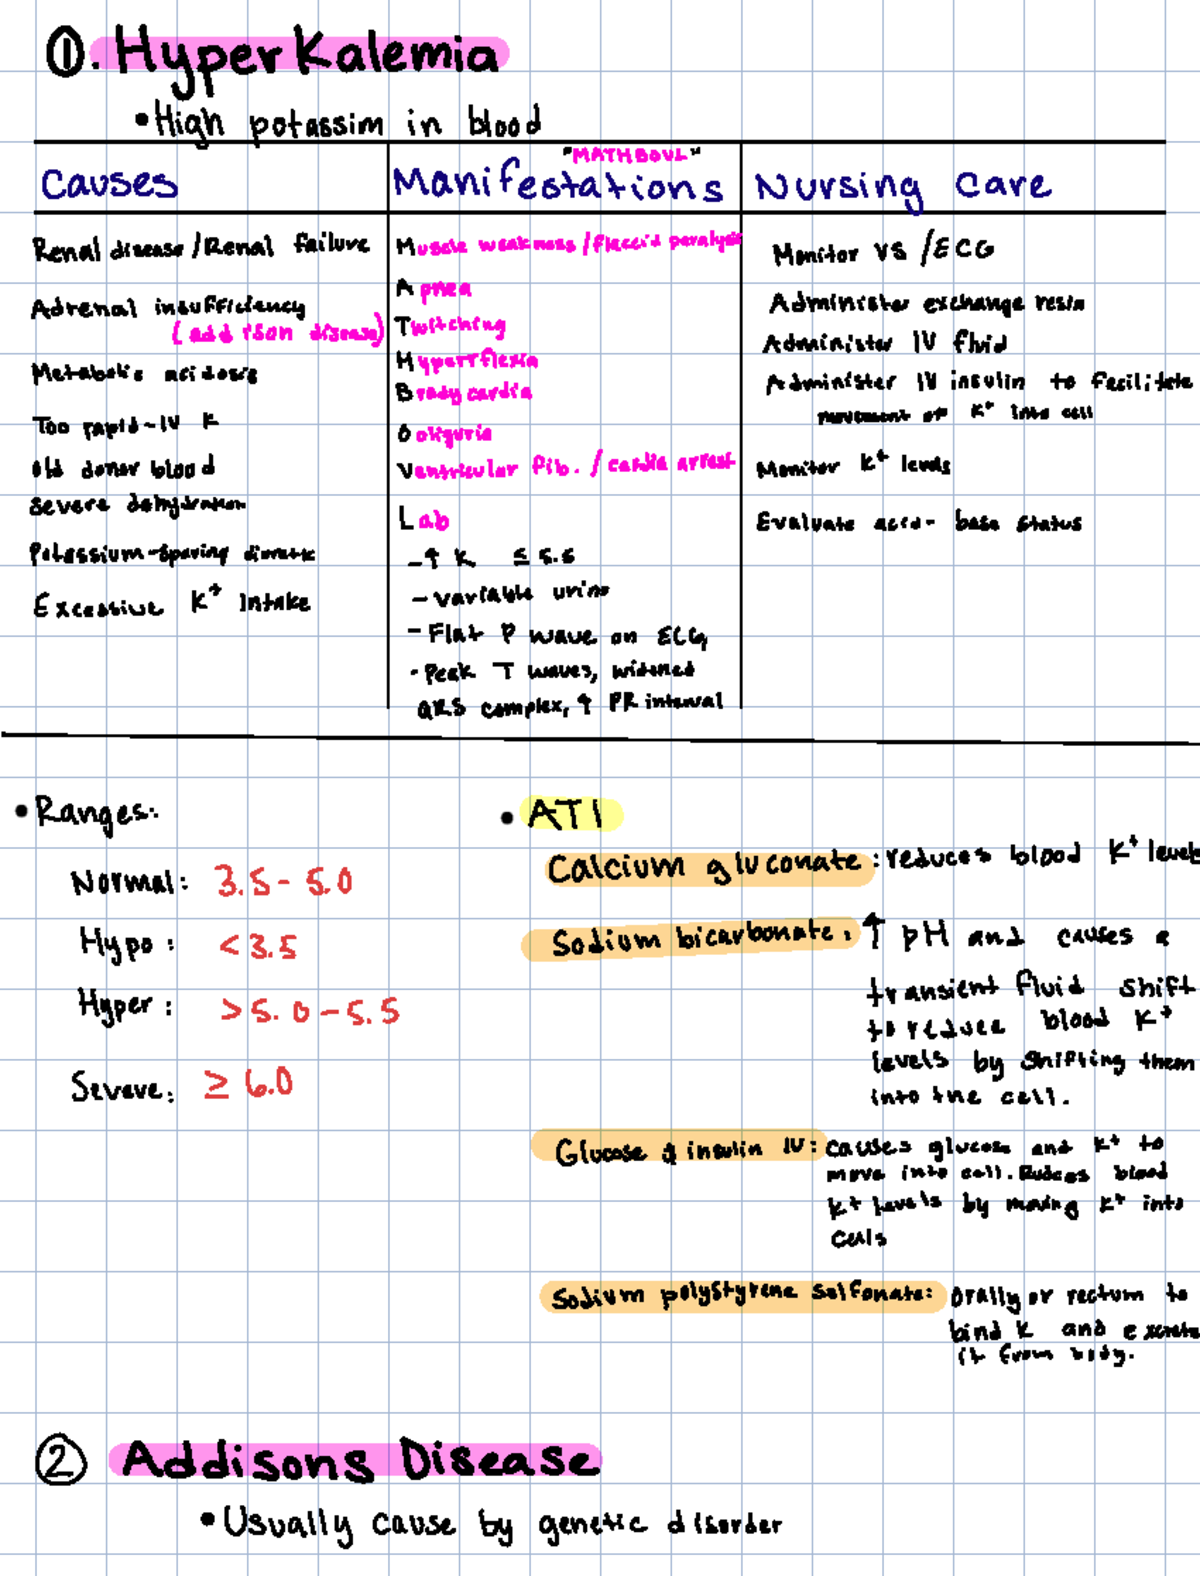 ①. HyperKalemia
• High potassim in blood
Causes
Renal disease/Renal failure
Adrenal insufficiency
(addison disease)
Metabolic acidosis
Too rapid-IV K
Old donor blood
severe dehydration
Potassium-sparing diuretic
Excessive K⁺ Intake
"MATHBOVL"
Manifestations
Muscle weakness/flaccid paralysis
Apnea
Twitching
Hyperrflexia
Bradycardia
Ooliguria
Ventricular fib. / cardia arrest
Lab
-↑ K ≤ 5.5
- variable urine
- Flat P wave on ECG
- Peak T waves, widened
QRS complex, ↑ PR interval
Nursing Care
Monitor VS /ECG
Administer exchange resin
Administer IV fluid
Administer IV insulin to facilitate
movement of K⁺ into cell
Monitor K⁺ levels
Evaluate acid-base status
• Ranges:
Normal: 3.5 - 5.0
Hypo: <3.5
Hyper: >5.0-5.5
Severe: ≥ 6.0
• ATI
Calcium gluconate: reduces blood K⁺ levels
Sodium bicarbonate: ↑ pH and causes a
transient fluid shift
to reduce blood K⁺
levels by shifting them
into the cell.
Glucose & insulin IV: causes glucose and K⁺ to
move into cell. Rudces blood
K⁺ levels by moving K⁺ into
cells
Sodium polystyrene salfonate: Orally or rectum to
bind K and excrete
it from body.
② Addisons Disease
• Usually cause by genetic disorder